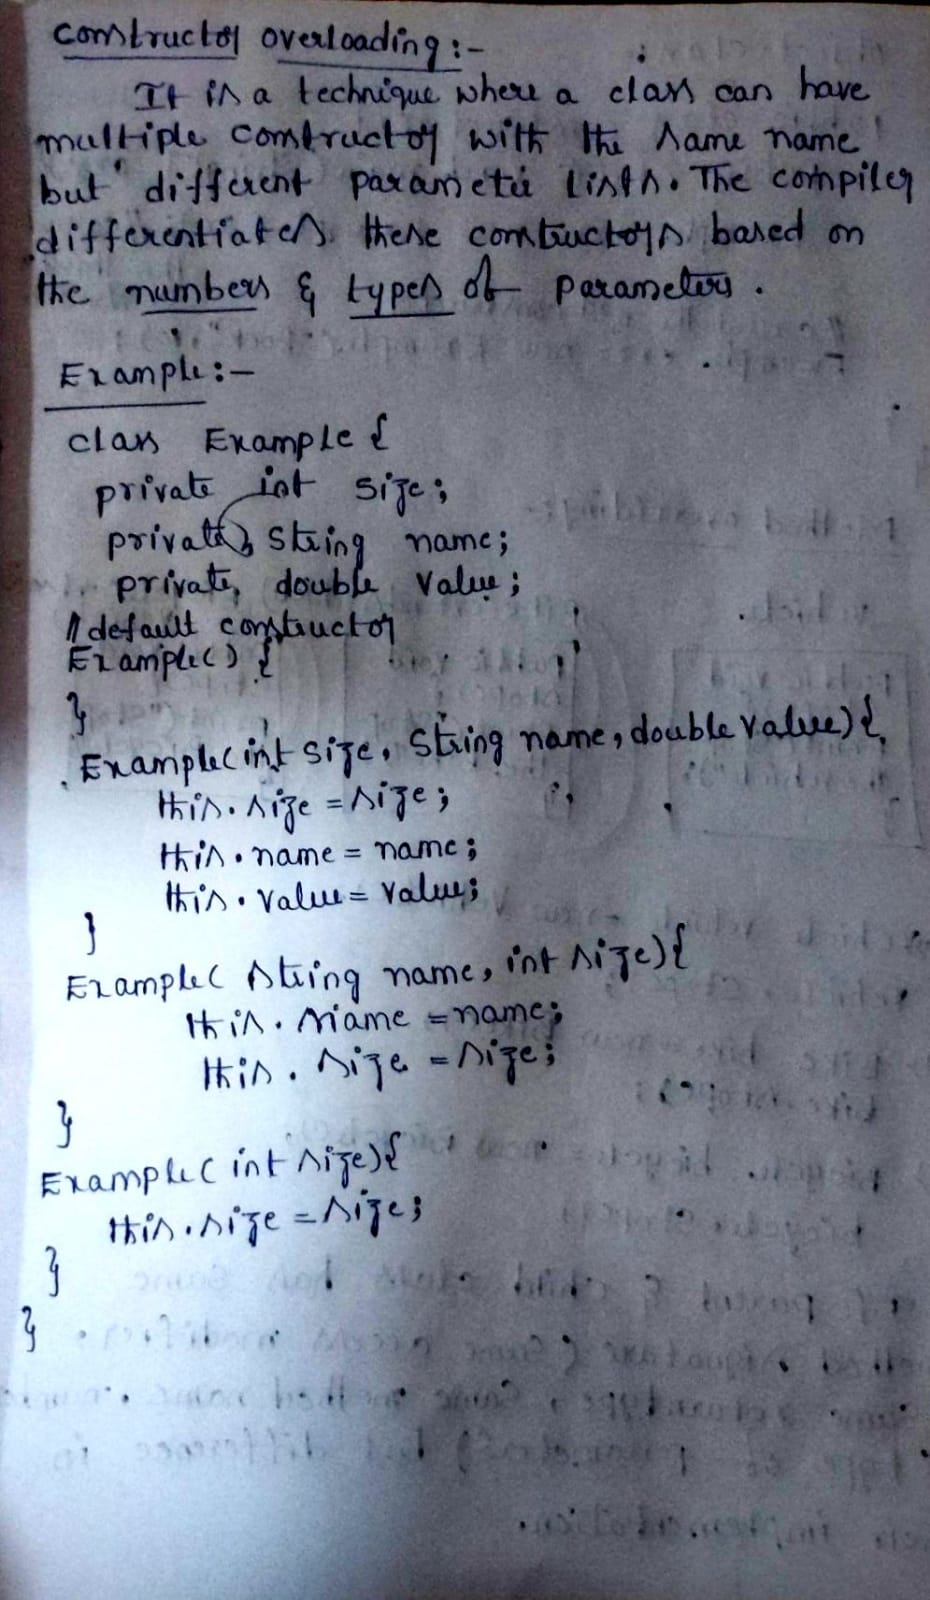 Constructor overloading:-
It is a technique where a class can have
multiple constructor with the same name
but different parameter lists. The compiler
differentiates these constructors based on
the numbers & types of parameters.
Example:-
class Example {
private int size;
private String name;
private, double value;
// default constructor
Example() {
}
Example(int size, String name, double value) {
this.size = size;
this.name = name;
this.value = value;
}
Example( String name, int size) {
this.name = name;
this.size = size;
}
Example( int size) {
this.size = size;
}
}